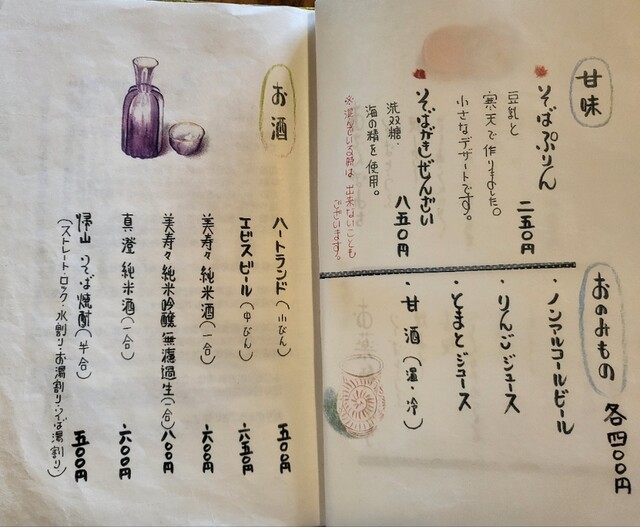 甘味
そばぷりん 二五〇円
豆乳と
寒天で作りました。
小さなデザートです。
そばがきぜんざい 八五〇円
洗双糖・
海の精を使用。
※混んでいる時は出来ないことも
ございます。
おのみもの 各四〇〇円
・ノンアルコールビール
・りんごジュース
・とまとジュース
・甘酒(温・冷)
お酒
ハートランド(小びん) 五〇〇円
エビスビール(中びん) 六五〇円
美寿々 純米酒(一合) 六〇〇円
美寿々 純米吟醸 無濾過生(一合) 八〇〇円
真澄 純米酒(一合) 六〇〇円
帰山 りそば焼酎(半合) 五〇〇円
(ストレート・ロック・水割り・お湯割り・そば湯割り)